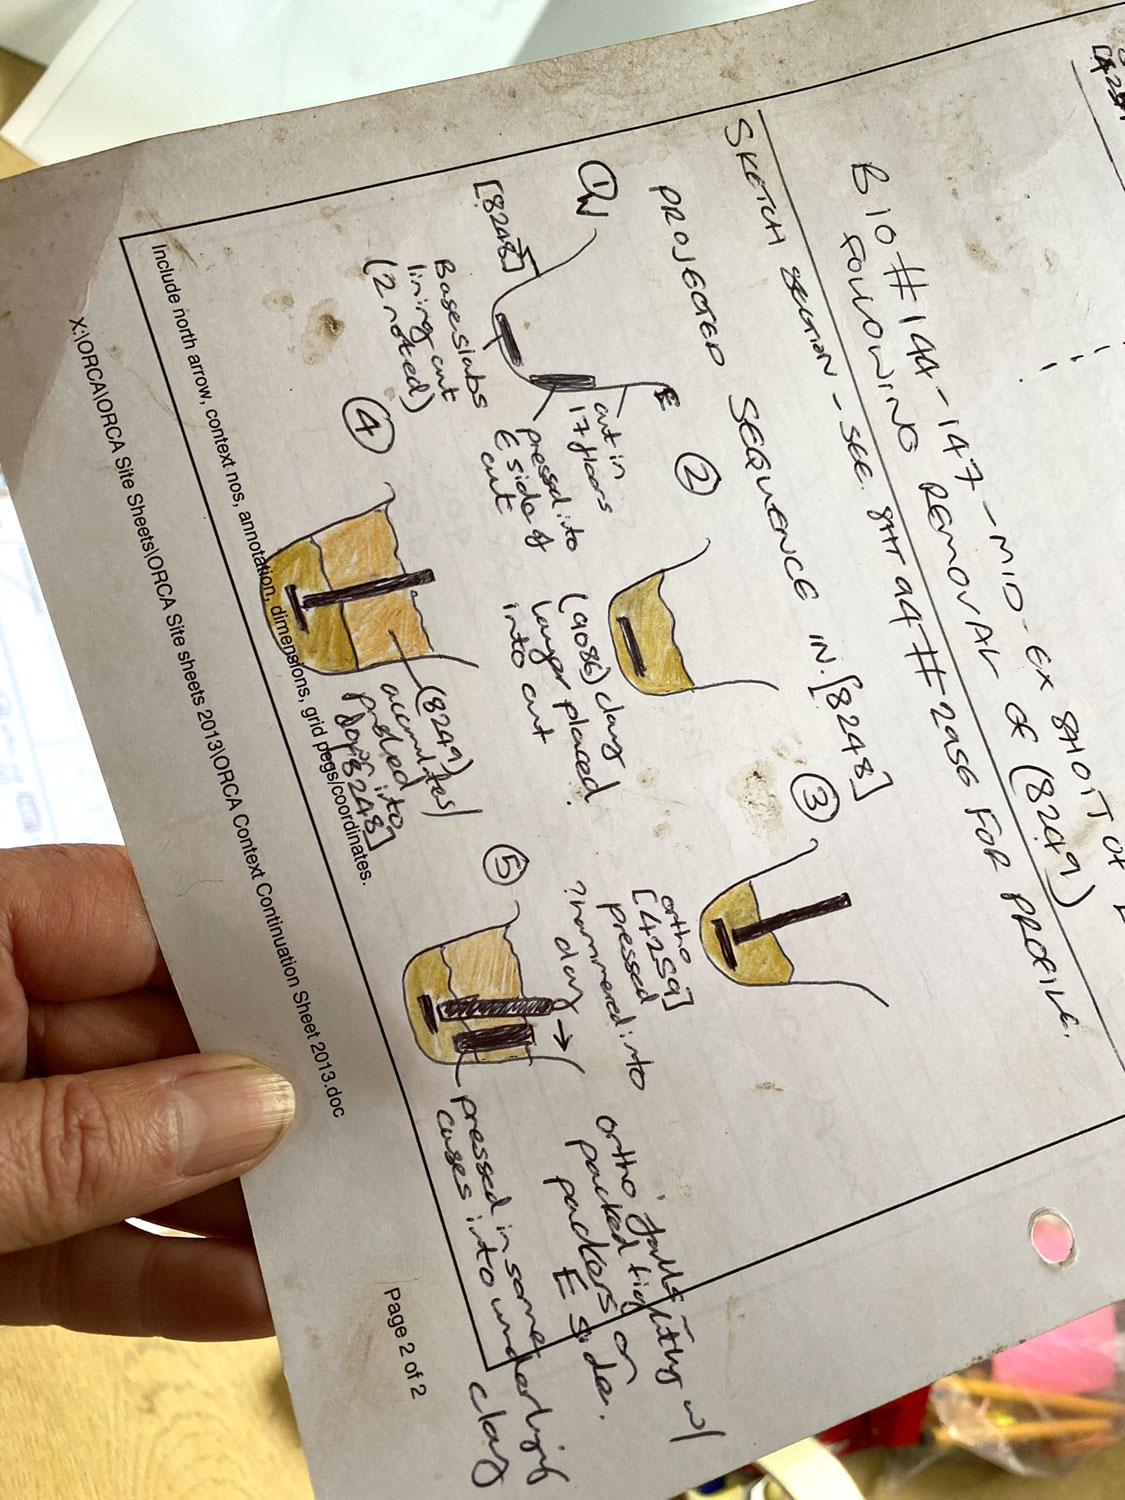 [4259]
B10#144-147 - MID-EX SHOTT OF
FOLLOWING REMOVAL OF (8249)
SKETCH SECTION - SEE. SHT 94 #2956 FOR PROFILE.
PROJECTED SEQUENCE IN. [8248]
① W
E
[8248]
Base slabs
lining cut
(2 noted)
cut in
17 floors
pressed into
E side of
cut
②
(9086) clay
layer placed
into cut
③
ortho
[4259]
pressed
?hammered into
clay →
④
(8249)
accumltes/
packed
down into
[8248]
⑤
ortho falls -
packed tightly w/
packers on
E side.
pressed in some
cases into underlying
clay
Include north arrow, context nos, annotation, dimensions, grid pegs/coordinates.
X:\ORCA\ORCA Site Sheets\ORCA Site sheets 2013\ORCA Context Continuation Sheet 2013.doc
Page 2 of 2